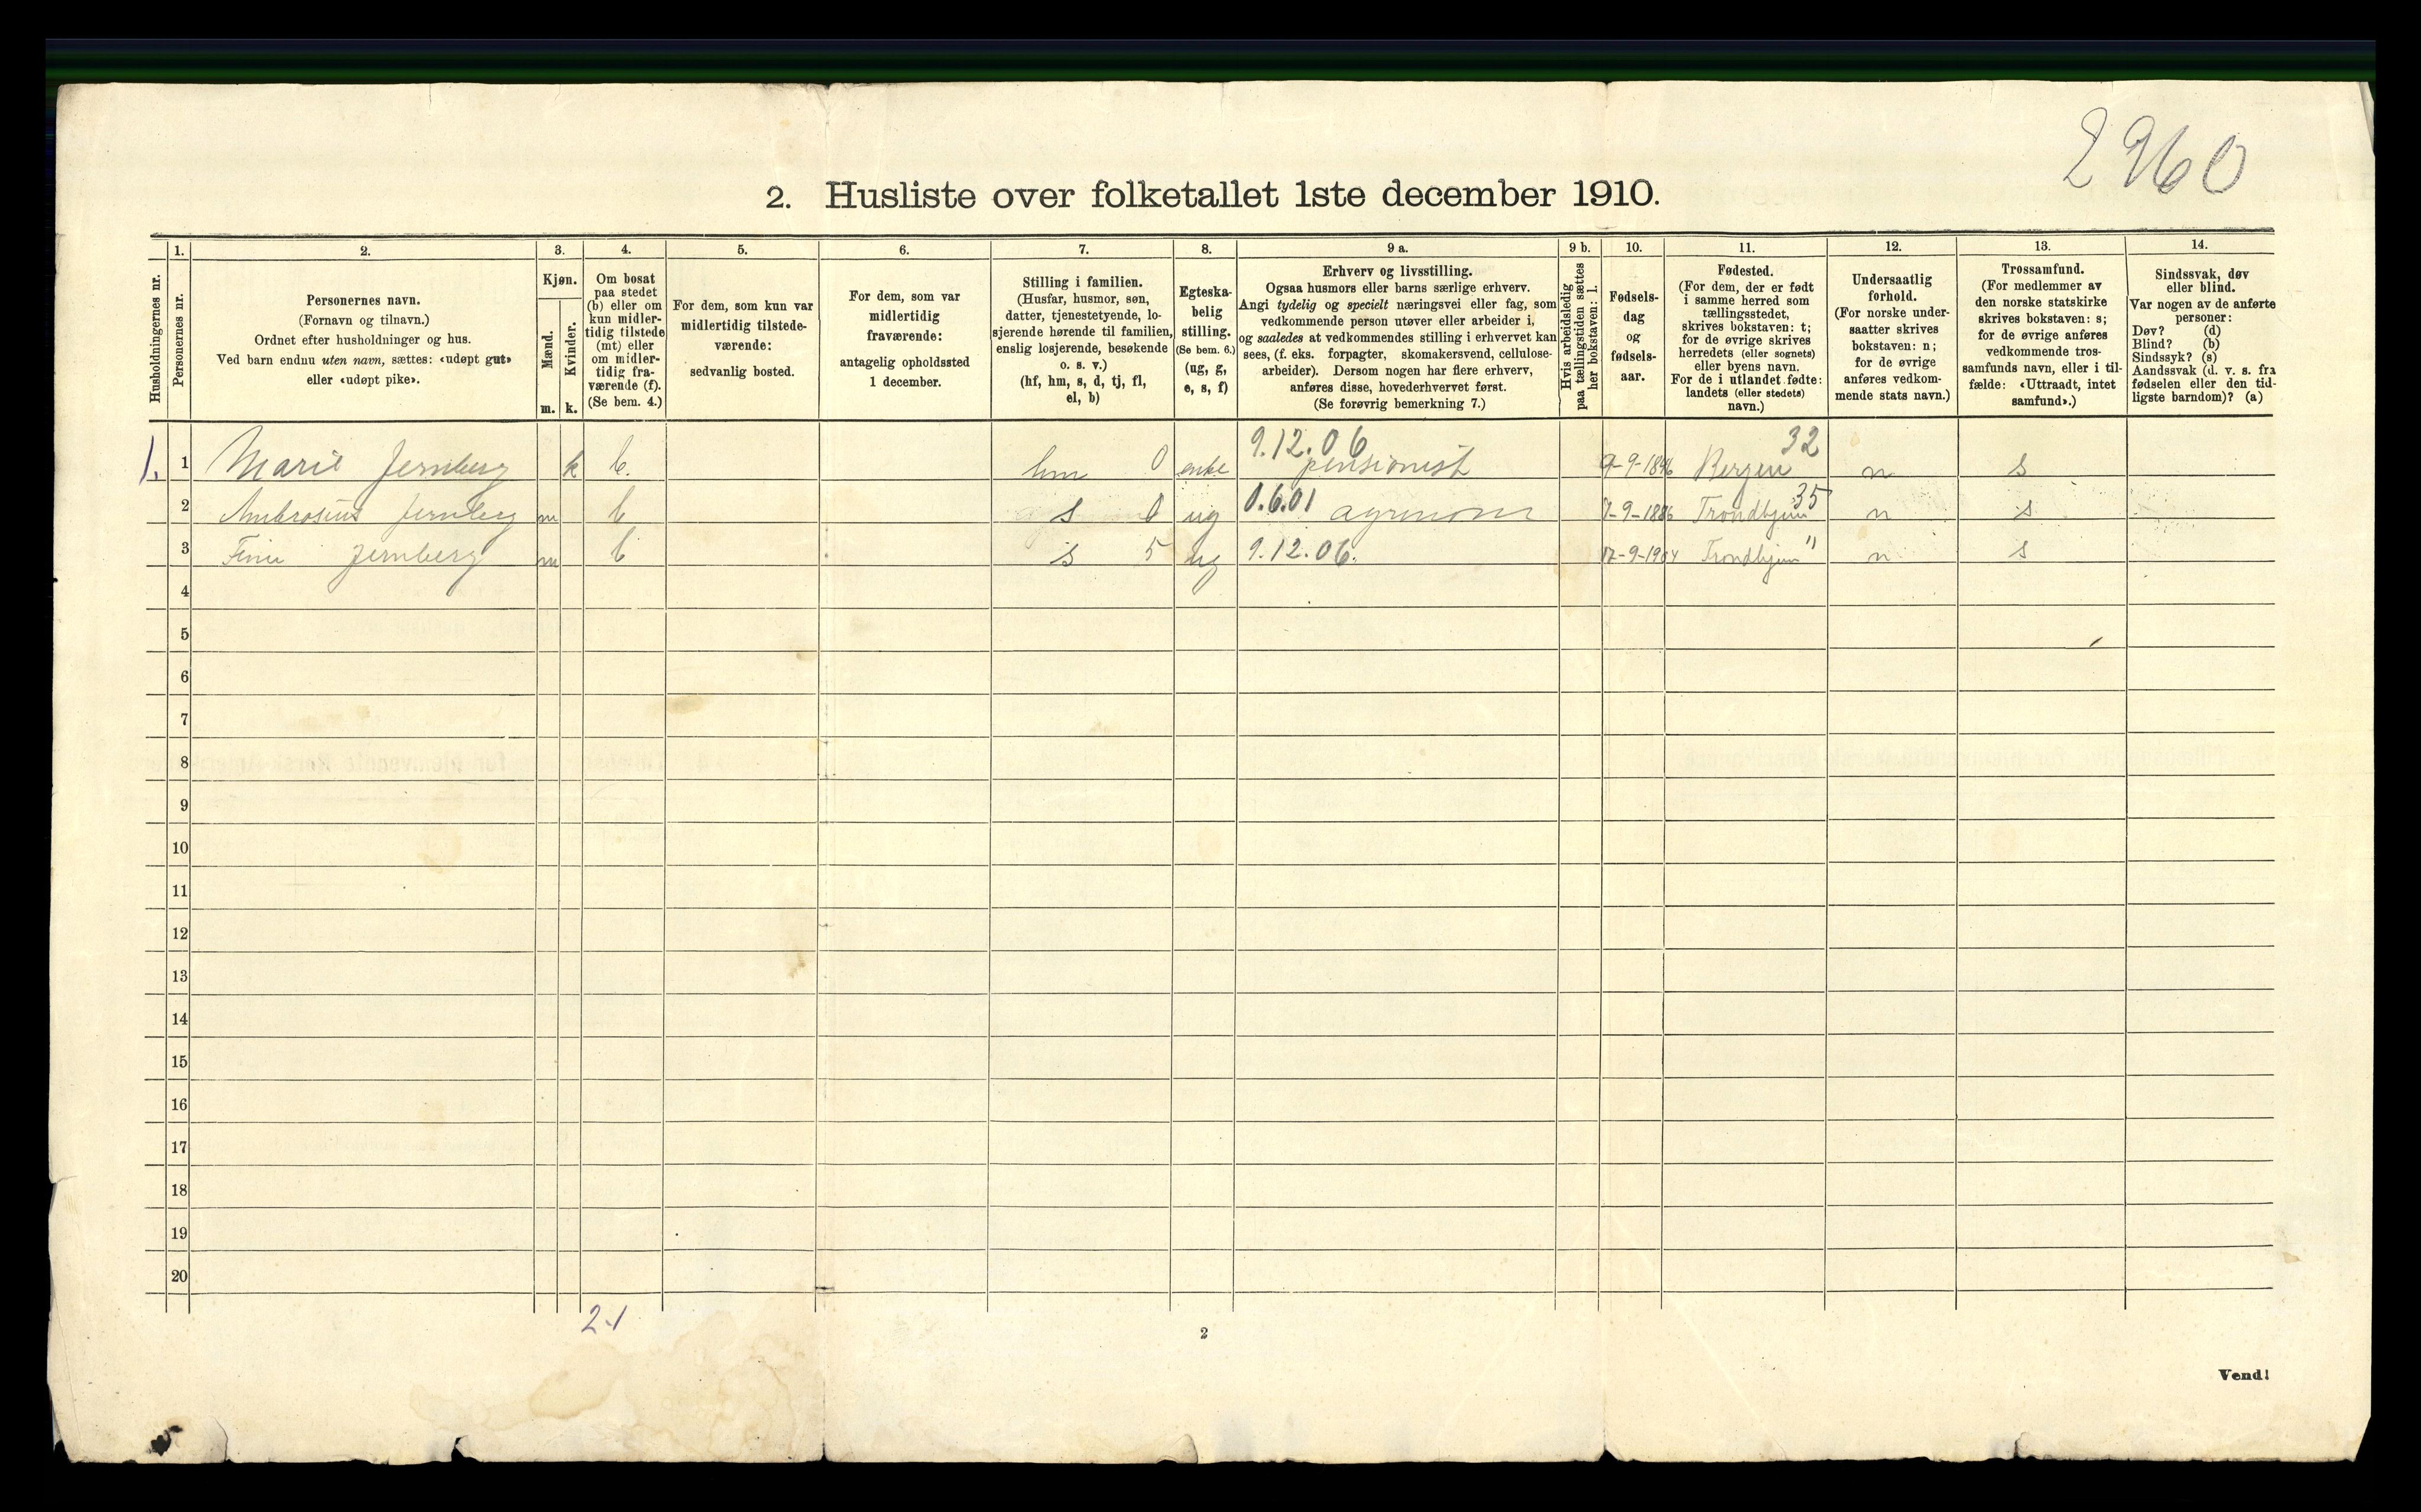 2960
2. Husliste over folketallet 1ste december 1910.
1. 2. 3. 4. 5. 6. 7. 8. 9 a. 9 b. 10. 11. 12. 13. 14.
Husholdningernes nr.
Personernes nr.
Personernes navn.
(Fornavn og tilnavn.)
Ordnet efter husholdninger og hus.
Ved barn endnu uten navn, sættes: «udøpt gut»
eller «udøpt pike».
Kjøn.
Mænd.
Kvinder.
m. k.
Om bosat
paa stedet
(b) eller om
kun midler-
tidig tilstede
(mt) eller
om midler-
tidig fra-
værende (f).
(Se bem. 4.)
For dem, som kun var
midlertidig tilstede-
værende:
sedvanlig bosted.
For dem, som var
midlertidig
fraværende:
antagelig opholdssted
1 december.
Stilling i familien.
(Husfar, husmor, søn,
datter, tjenestetyende, lo-
sjerende hørende til familien,
enslig losjerende, besøkende
o. s. v.)
(hf, hm, s, d, tj, fl,
el, b)
Egteska-
belig
stilling.
(Se bem. 6.)
(ug, g,
e, s, f)
Erhverv og livsstilling.
Ogsaa husmors eller barns særlige erhverv.
Angi tydelig og specielt næringsvei eller fag, som
vedkommende person utøver eller arbeider i,
og saaledes at vedkommendes stilling i erhvervet kan
sees, (f. eks. forpagter, skomakersvend, cellulose-
arbeider). Dersom nogen har flere erhverv,
anføres disse, hovederhvervet først.
(Se forøvrig bemerkning 7.)
Hvis arbeidsledig
paa tællingstiden sættes
her bokstaven: l.
Fødsels-
dag
og
fødsels-
aar.
Fødested.
(For dem, der er født
i samme herred som
tællingsstedet,
skrives bokstaven: t;
for de øvrige skrives
herredets (eller sognets)
eller byens navn.
For de i utlandet fødte:
landets (eller stedets)
navn.)
Undersaatlig
forhold.
(For norske under-
saatter skrives
bokstaven: n;
for de øvrige
anføres vedkom-
mende stats navn.)
Trossamfund.
(For medlemmer av
den norske statskirke
skrives bokstaven: s;
for de øvrige anføres
vedkommende tros-
samfunds navn, eller i til-
fælde: «Uttraadt, intet
samfund».)
Sindssvak, døv
eller blind.
Var nogen av de anførte
personer:
Døv? (d)
Blind? (b)
Sindssyk? (s)
Aandssvak (d. v. s. fra
fødselen eller den tid-
ligste barndom)? (a)
9.12.06 32
1. 1 Marie Jernberg k b. hm 0 enke pensionist Bergen n s
2 Ambrosius Jernberg m b s 0 ug 0.6.01 agronom 7-9-1886 Trondhjem 35 n s
3 Jernberg m b s 5 ug 9.12.06. 12-9-1904 Trondhjem " n s
4
5
6
7
8
9
10
11
12
13
14
15
16
17
18
19
20
2-1
2
Vend!